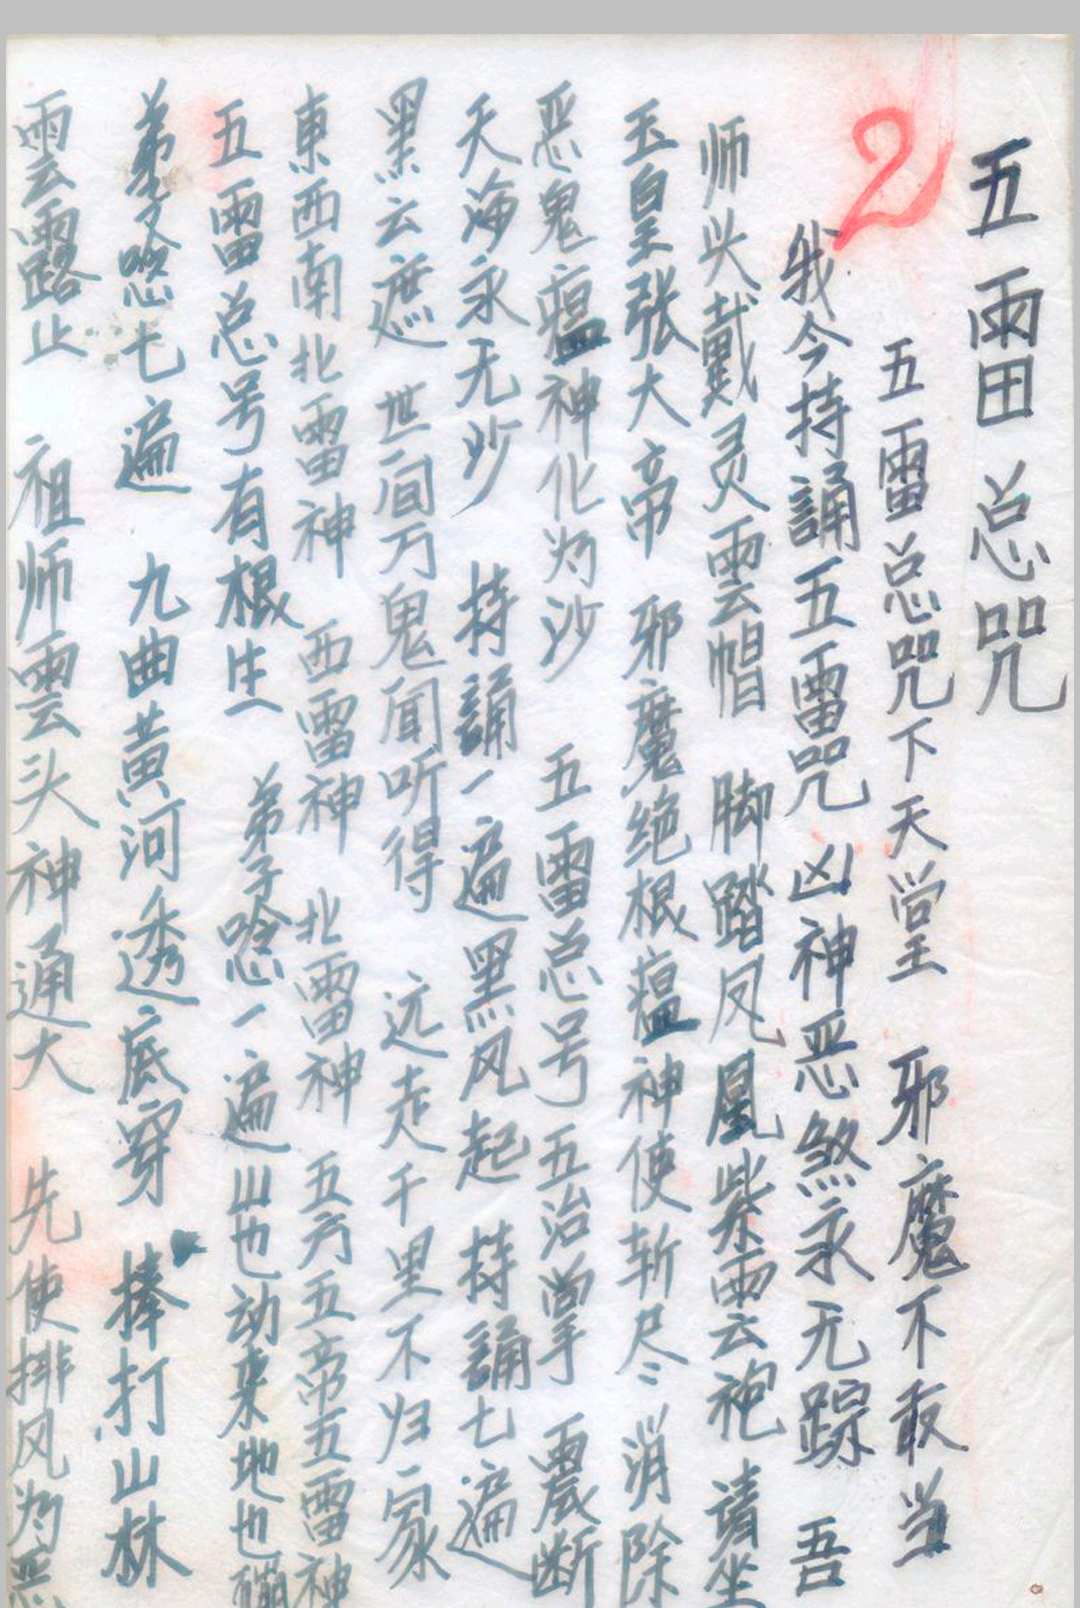 五雷总咒
2
五雷总咒下天堂 邪魔不敢当
我今持誦五雷咒 凶神恶煞永无踪 吾
师头戴灵雲帽 脚踏凤凰紫雲袍 請坐
玉皇张大帝 邪魔绝根瘟神使斩尽 消除
恶鬼瘟神化为沙 五雷总号五治掌 震断
天海永无沙 持誦一遍黑风起 持誦七遍
黑云遮 世间万鬼闻听得 远走千里不归家
東西南北雷神 西雷神 北雷神 五方五帝五雷神
五雷总号有根生 弟子唸一遍山也动来地也崩
弟子唸七遍 九曲黄河透底穿 捧打山林
雲露止 祖师雲头神通大 先使排风为恶